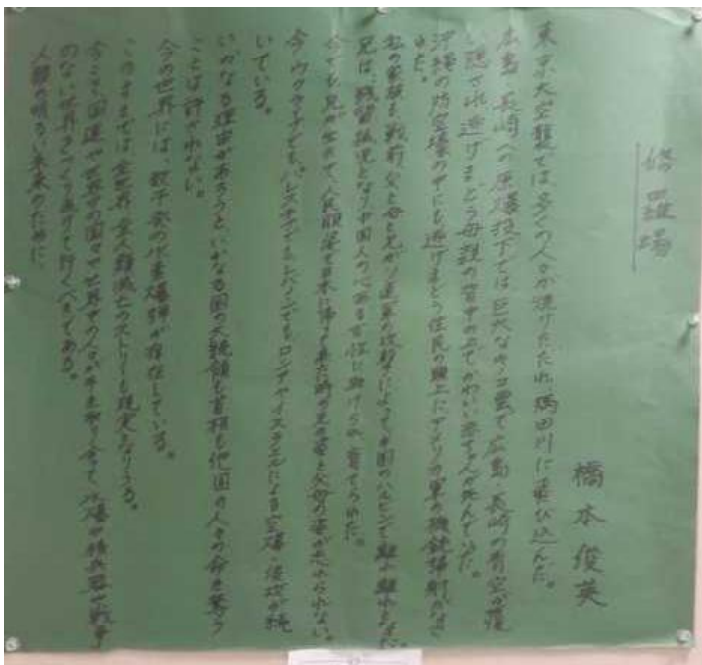 修羅場
橋本俊英
東京大空襲では、多くの人々が焼けただれ、隅田川に飛び込んだ。
広島、長崎への原爆投下では巨大なキノコ雲で広島、長崎の青空が覆
い隠され逃げまどう母親の背中の上でかわいい赤ちゃんが死んでいた。
沖縄の防空壕の中にも逃げまどう住民の頭上にアメリカ軍の機銃掃射がなさ
れた。
私の家族も戦前、父と母と兄がソ連軍の攻撃によって中国のハルピンで離れ離れになった。
兄は、残留孤児となり中国人の心ある女性に助けられ、育てられた。
今でも兄が 人民服姿で日本に帰って来た時の兄の姿と父母の姿が忘れられない。
今、ウクライナでも、パレスチナでもレバノンでもロシアやイスラエルによる空爆、侵攻が続
いている。
いかなる理由があろうといかなる国の大統領も首相も他国の人々の命を奪う
ことは許されない。
今の世界には、数千発の水素爆弾が存在している。
このままでは、全世界、全人類滅亡のストーリーも現実となりうる。
今こそ、国連や世界中の国々や世界中の人々が手を取り合って、核兵器や戦争
のない世界をつくりあげて行くべきである。
人類の明るい未来のために